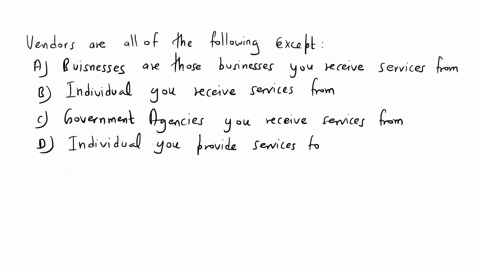 Vendors are all of the following Except:
A) Buisnesses are those businesses you receive services from
B) Individual you receive services from
C) Government Agencies you receive services from
D) Individual you provide services to